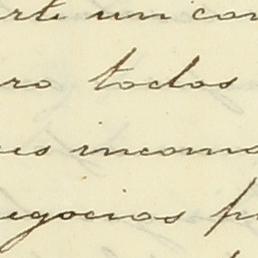 rte un con
ro todos
es incomo
egocios p